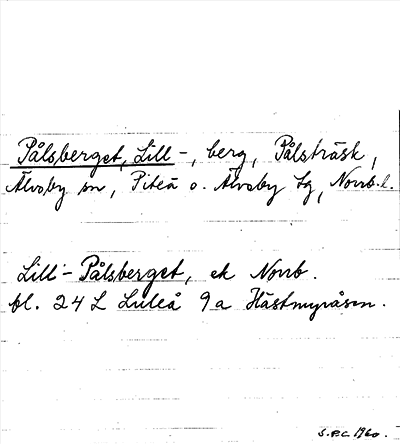 Pålsberget, Lill-, berg, Pålsträsk,
Älvsby sn, Piteå o. Älvsby tg, Norrb.l.
Lill-Pålsberget, ek Norrb.
bl. 24 L Luleå 9a Hästmyråsen.
S.P.C. 1960.